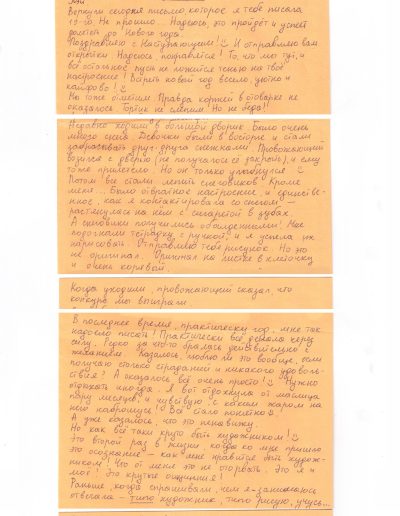 Вернули сегодня письмо, которое я тебе писала
19-го. Не прошло... Надеюсь, это пройдёт и успеет
долететь до Нового года!
Поздравляю с Наступающим! И отправляю вам
открытки. Надеюсь, понравятся! То, что мы тут, и
всё остальное пусть не ложится тенью на твоё
настроение! Встреть новый год весело, уютно и
кайфово!
Мы тоже отметим. Правда коржей в отоварке не
оказалось. Тортик не слепим. Но не беда!!
Недавно ходили в большой дворик. Было очень
много снега. Девчонки были в восторге и стали
забрасывать друг друга снежками. Провожающий
возился с дверью (не получалось её закрыть), и ему
тоже прилетело. Но он только улыбнулся
Потом все стали лепить снеговиков. Кроме
меня... Было отвратное настроение, и единстве-
нное, как я контактировала со снегом -
растянулась на нём с сигаретой в зубах.
А снеговики получились обалденными! Мне
подогнали тетрадку с ручкой, и я успела их
нарисовать. Отправляю тебе рисунок. Но это
не оригинал. Оригинал на листке в клеточку
и очень корявый.
Когда уходили, провожающий сказал, что
конкурс мы выиграли.
В последнее время, практически год, мне так
надоело писать! Практически всё делала через
силу. Редко за что-то бралась действительно с
желанием. Казалось, люблю ли это вообще, если
получаю столько страданий и никакого удоволь-
ствия? А оказалось всё очень просто! Нужно
отдыхать иногда. Я вот отдохнула от масла
пару месяцев, и чувствую, с каким жаром на
него набросилась! Всё стало понятно
А уже казалось, что это ненавижу.
Но как всё-таки круто быть художником!
Это второй раз в жизни, когда ко мне пришло
это осознание - как мне нравится быть худож-
ником! Что от меня это не оторвать. Это я и
моё! Это крутые ощущения!
Раньше, когда спрашивали, чем я занимаюсь
отвечала - типа художник, типа рисую, учусь...